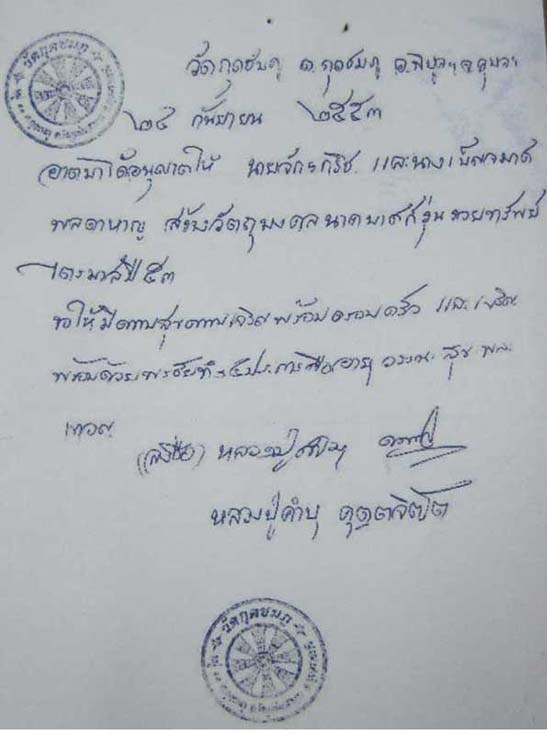 วัดกุดชมภู
วัดกุดชมภู ต.กุดชมภู อ.พิบูลฯ จ.อุบลฯ
๒๔ กันยายน ๒๕๕๓
อาตมาได้อนุญาตให้ นายจักรกริช และนางเบ็ญจมาศ
พลดาหาญ สร้างวัตถุมงคลนาคบาศก์รุ่นรวยทรัพย์
ไตรมาสปี ๕๓
ขอให้มีความสุขความเจริญพร้อมครอบครัว และเจริญ
พร้อมด้วยพรชัยทั้ง ๔ ประการคือ อายุ วรรณะ สุขะ พละ
เทอญ
(ลงชื่อ) หลวงปู่คำบุ
หลวงปู่คำบุ คุตฺตจิตฺโต
วัดกุดชมภู